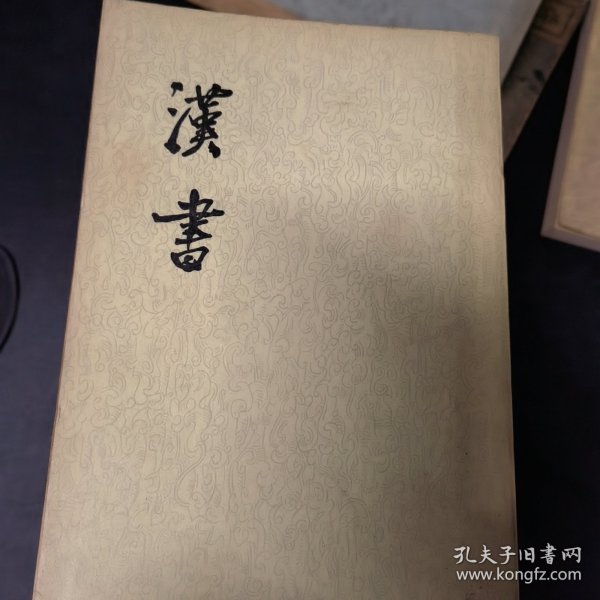 漢書
孔夫子旧書网
www.kongfz.com